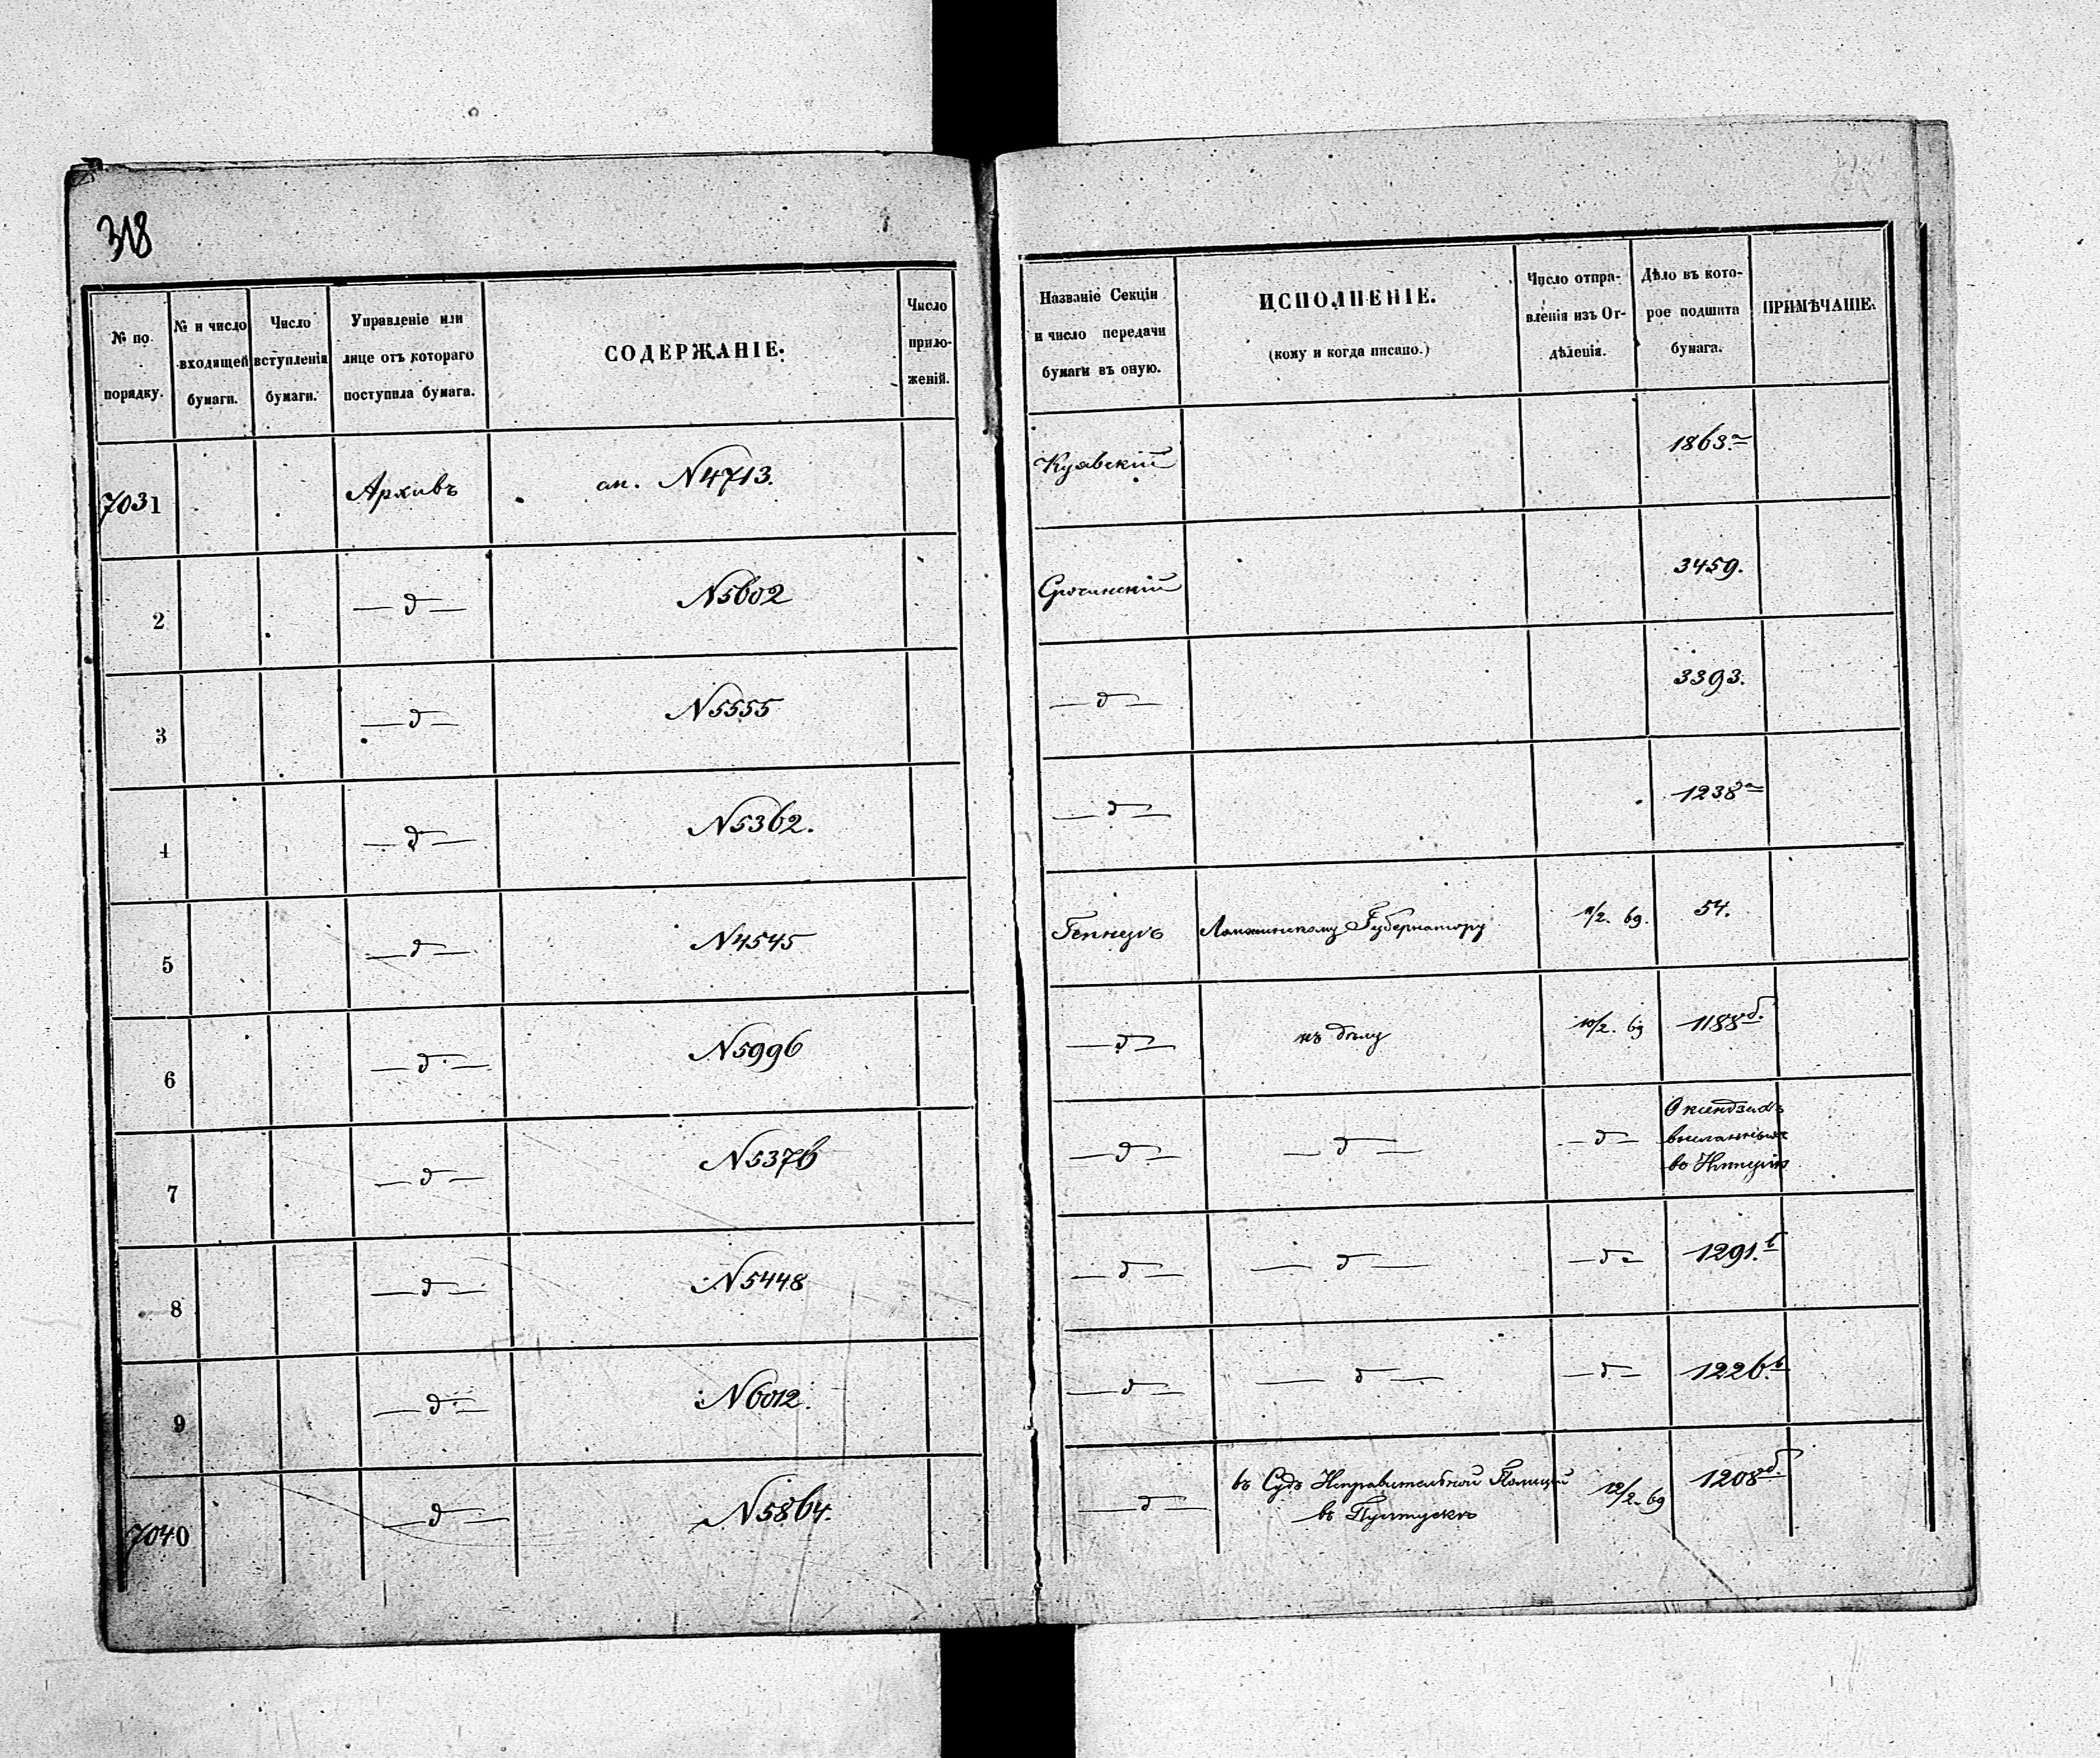 318
№ по порядку.
№ и число входящей бумаги.
Число вступленія бумаги.
Управленіе или лице отъ котораго поступила бумага.
СОДЕРЖАНІЕ.
Число приложеній.
Названіе Секціи и число передачи бумаги въ оную.
ИСПОЛНЕНІЕ.
(кому и когда писано.)
Число отправленія изъ Отдѣленія.
Дѣло въ которое подшита бумага.
ПРИМѢЧАНІЕ.
7031 Архивъ ап. N 4713. Куявскій 1863 а
2 — д — N 5602 3459.
3 — д — N 5555 — д — 3393.
4 — д — N 5362. — д — 1238 а
5 — д — N 4545 Ломжинскому Губернатору 11/2. 69. 54.
6 — д — N 5996 — д — къ дѣлу 10/2. 69 1188 б.
7 — д — N 5376 — д — — д — — д — О ксендзахъ
высланныхъ
въ Имперію
8 — д — N 5448 — д — — д — — д — 1291. в
9 — д — N 6012. — д — — д — — д — 1226. в
7040 — д — N 5864. — д — въ Судъ Исправительной Полиціи 12/2. 69 1208 б.
въ Пултускѣ